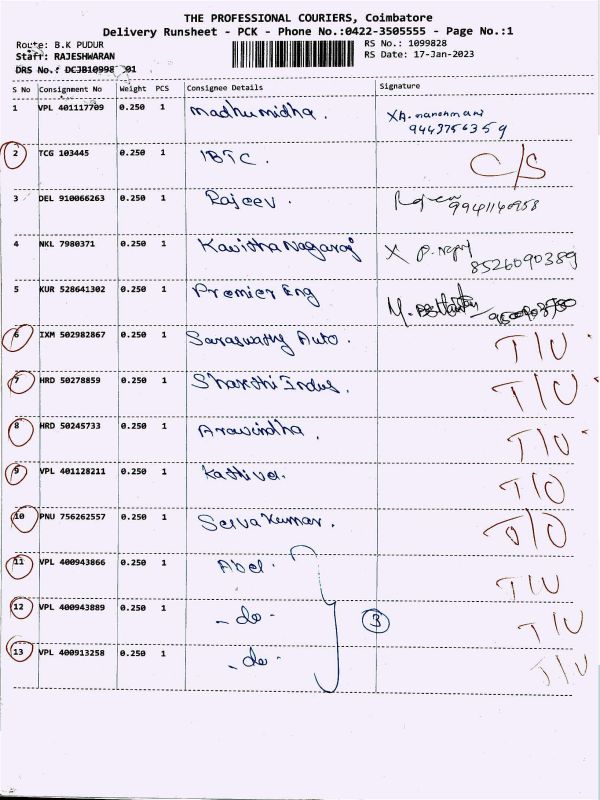 THE PROFESSIONAL COURIERS, Coimbatore
Delivery Runsheet - PCK - Phone No.:0422-3505555 - Page No.:1
Route: B.K PUDUR RS No.: 1099828
Staff: RAJESHWARAN RS Date: 17-Jan-2023
DRS No.:
S No Consignment No Weight PCS Consignee Details Signature
1 VPL 401117709 0.250 1 Madhumidha. XA. manohmani
9443756359
2 TCG 103445 0.250 1 IBTC. C/S
3 DEL 910066263 0.250 1 Rajeev. 9941140958
4 NKL 7980371 0.250 1 Kavistha Nagaraj X P. 
8526090389
5 KUR 528641302 0.250 1 Premier Eng M.
6 IXM 502982867 0.250 1 Saraswathy Auto. T/U
7 HRD 50278859 0.250 1 Shakthi Indus. T/U
8 HRD 50245733 0.250 1 Aravindha. T/U
9 VPL 401128211 0.250 1 Kathivel. T/O
10 PNU 756262557 0.250 1 Selva Kumar. T/O
11 VPL 400943866 0.250 1 Abel. T/U
12 VPL 400943889 0.250 1 - do - 3 T/U
13 VPL 400913258 0.250 1 - do - T/U